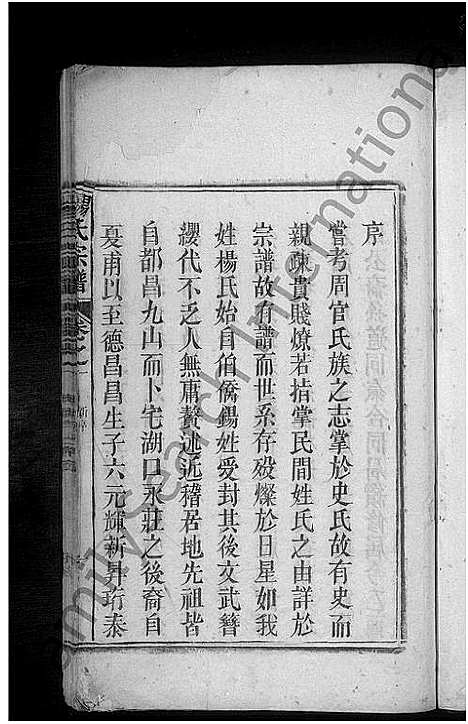 序
嘗考周官氏族之志掌於史氏故有史而
親疎貴賤燎若指掌民間姓氏之由詳於
宗譜故有譜而世系存殁燦於日星如我
姓楊氏始自伯僑錫姓受封其後文武簪
纓代不乏人無庸贅述近稽居地先祖皆
自都昌九山而卜宅湖口永莊之後裔自
夏甫以至德昌昌生子六元輝新昇珩泰
楊氏宗譜
卷之